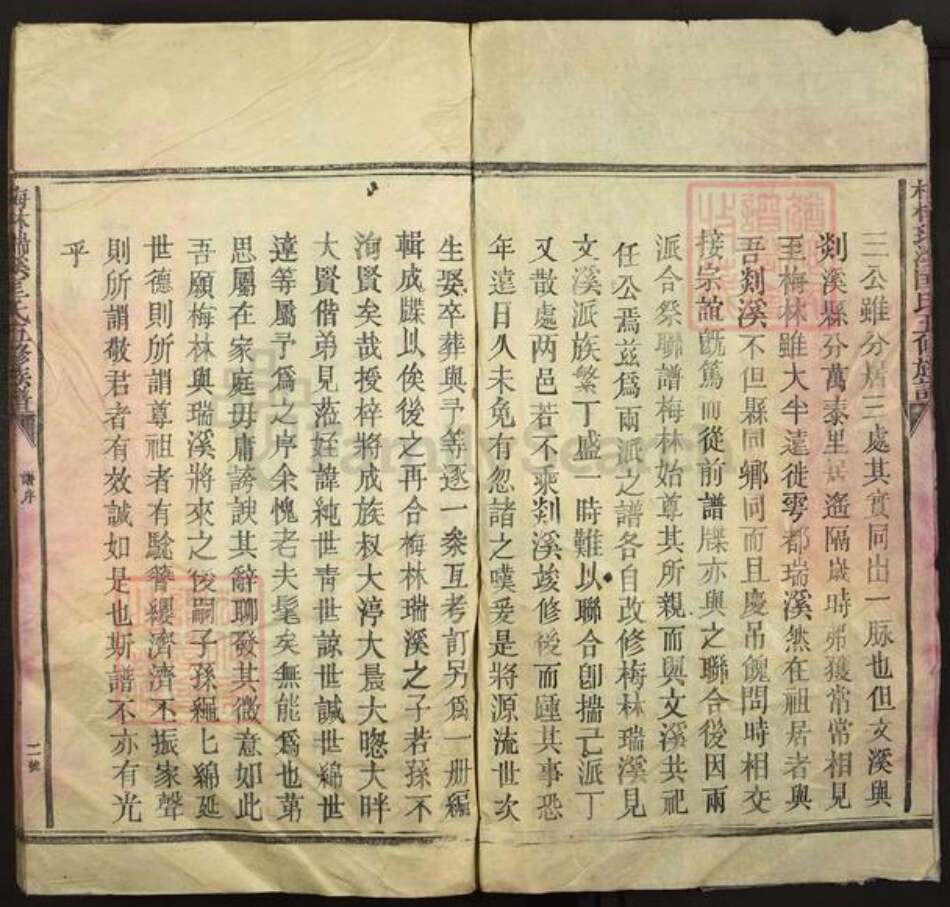 三公雖分居三處其實同出一脉也但文溪與
剡溪縣分萬泰里居遙隔歲時弗獲常常相見
至梅林雖大半遠徙雩都瑞溪然在祖居者與
吾剡溪不但縣同鄉同而且慶吊餽問時相交
接宗誼旣篤而從前譜牒亦與之聯合後因兩
派合祭聯譜梅林始尊其所親而與文溪共祀
任公焉兹爲兩派之譜各自改修梅林瑞溪見
文溪派族繁丁盛一時難以聯合卽搢己派丁
又散處两邑若不乘剡溪竣修後而踵其事恐
年遠日久未免有忽諸之嘆爰是將源流世次
生娶卒葬與予等逐一叅互考訂另爲一册編
輯成牒以俟後之再合梅林瑞溪之子若孫不
洵賢矣哉授梓將成族叔大渟大晨大暳大畔
大賢偕弟見蒞姪諱純世靑世諒世誠世綿世
達等屬予爲之序余愧老夫髦矣無能爲也苐
思屬在家庭毋庸誇諛其辭聊發其微意如此
吾願梅林與瑞溪將來之後嗣子孫繩匕綿延
世德則所謂尊祖者有驗簪纓濟濟丕振家聲
則所謂敬君者有效誠如是也斯譜不亦有光
乎
梅林瑞溪
氏五修族譜
譜序
二號